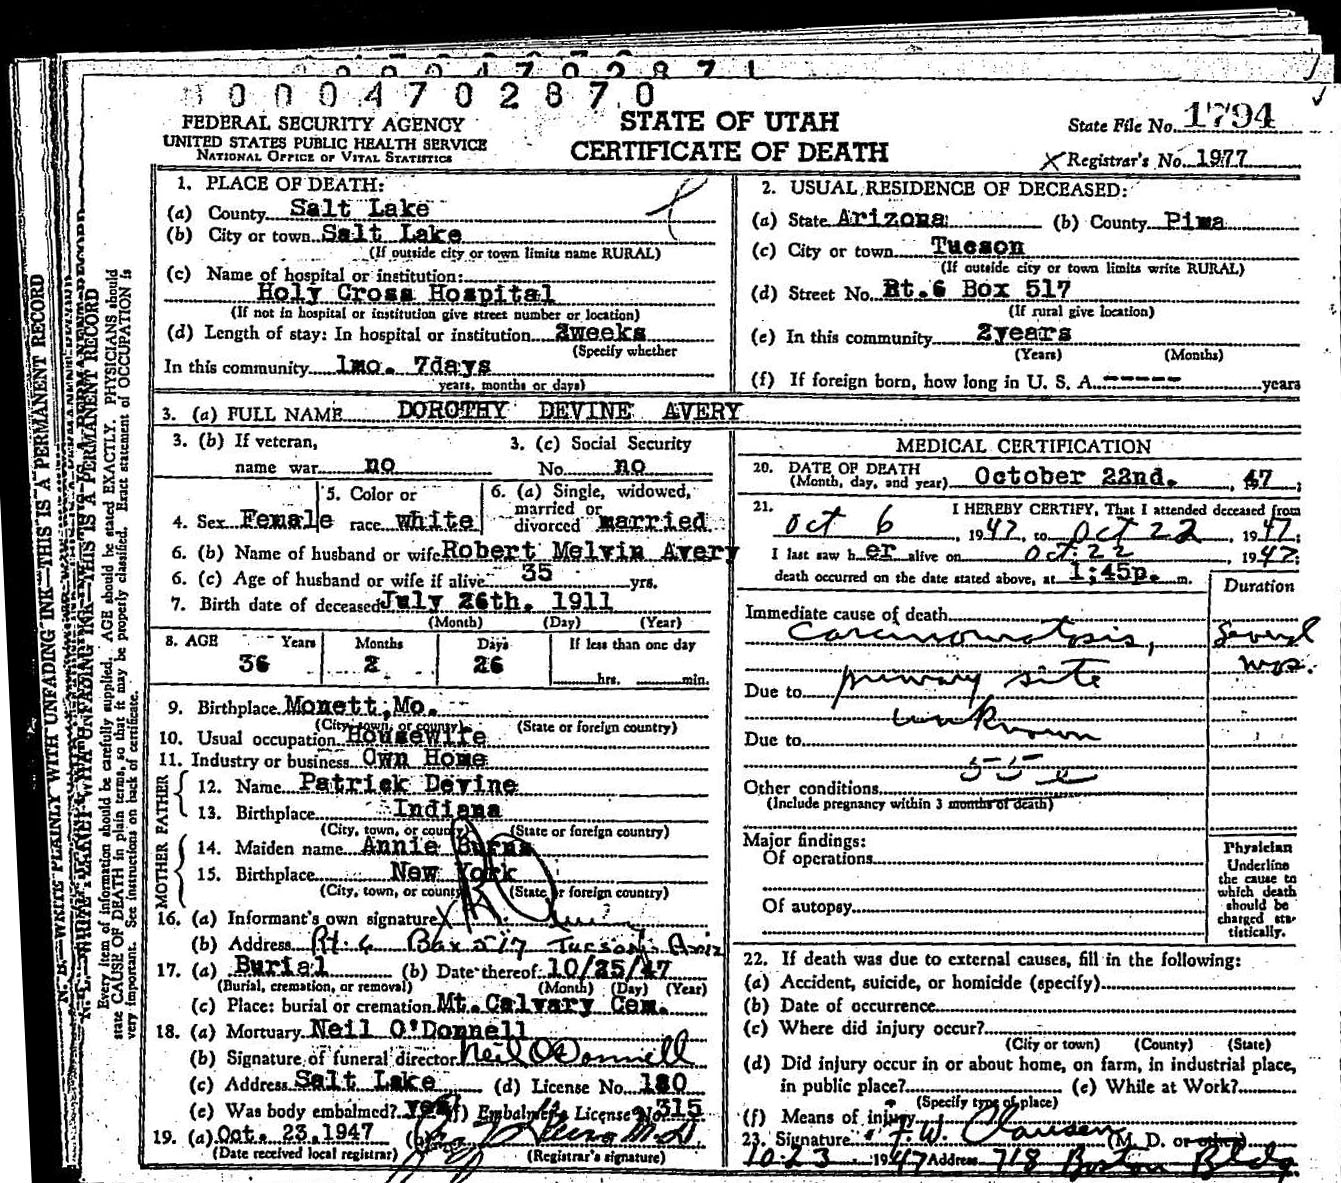 0 0 0 4 7 0 2 8 7 0
FEDERAL SECURITY AGENCY
UNITED STATES PUBLIC HEALTH SERVICE
NATIONAL OFFICE OF VITAL STATISTICS
STATE OF UTAH
CERTIFICATE OF DEATH
State File No. 1794
X Registrar's No. 1977
1. PLACE OF DEATH:
(a) County Salt Lake
(b) City or town Salt Lake
(If outside city or town limits name RURAL)
(c) Name of hospital or institution:
Holy Cross Hospital
(If not in hospital or institution give street number or location)
(d) Length of stay: In hospital or institution 2weeks
(Specify whether
In this community 1mo. 7days
years, months or days)
2. USUAL RESIDENCE OF DECEASED:
(a) State Arizona (b) County Pima
(c) City or town Tucson
(If outside city or town limits write RURAL)
(d) Street No. Rt.6 Box 517
(If rural give location)
(e) In this community 2years
(Years) (Months)
(f) If foreign born, how long in U. S. A. ----- years
3. (a) FULL NAME DOROTHY DEVINE AVERY
3. (b) If veteran,
name war no
3. (c) Social Security
No. no
4. Sex Female
5. Color or
race white
6. (a) Single, widowed,
married or
divorced married
6. (b) Name of husband or wife Robert Melvin Avery
6. (c) Age of husband or wife if alive 35 yrs.
7. Birth date of deceased July 26th. 1911
(Month) (Day) (Year)
8. AGE Years Months Days If less than one day
36 2 26 hrs. min.
9. Birthplace Monett,Mo.
(City, town, or county) (State or foreign country)
10. Usual occupation Housewife
11. Industry or business Own Home
FATHER
12. Name Patrick Devine
13. Birthplace Indiana
(City, town, or county) (State or foreign country)
MOTHER
14. Maiden name Annie Burns
15. Birthplace New York
(City, town, or county) (State or foreign country)
16. (a) Informant's own signature X
(b) Address Rt. 6 Box 517 Tucson Ariz
17. (a) Burial (b) Date thereof 10/25/47
(Burial, cremation, or removal) (Month) (Day) (Year)
(c) Place: burial or cremation Mt.Calvary Cem.
18. (a) Mortuary Neil O'Donnell
(b) Signature of funeral director Neil O'Donnell
(c) Address Salt Lake (d) License No. 180
(e) Was body embalmed? yes (f) Embalmer's License No. 315
19. (a) Oct. 23,1947 (b) M.D.
(Date received local registrar) (Registrar's signature)
MEDICAL CERTIFICATION
20. DATE OF DEATH
(Month, day, and year) October 22nd. , 47
21. I HEREBY CERTIFY, That I attended deceased from
Oct 6 , 1947, to Oct 22 , 1947;
I last saw her alive on Oct. 22 , 1947;
death occurred on the date stated above, at 1:45p. m.
Duration
Immediate cause of death
Carcinomatosis, Several
mos.
Due to primary site
unknown
Due to
55e
Other conditions
(Include pregnancy within 3 months of death)
Major findings:
Of operations
Of autopsy
Physician
Underline
the cause to
which death
should be
charged sta-
tistically.
22. If death was due to external causes, fill in the following:
(a) Accident, suicide, or homicide (specify)
(b) Date of occurrence
(c) Where did injury occur?
(City or town) (County) (State)
(d) Did injury occur in or about home, on farm, in industrial place,
in public place? (e) While at Work?
(Specify type of place)
(f) Means of injury
23. Signature T. W. Clausen (M. D. or other)
10-23 1947 Address 718 Boston Bldg
N. B.—WRITE PLAINLY WITH UNFADING INK—THIS IS A PERMANENT RECORD
Every item of information should be carefully supplied. AGE should be stated EXACTLY. PHYSICIANS should
state CAUSE OF DEATH in plain terms, so that it may be properly classified. Exact statement of OCCUPATION is
very important. See instructions on back of certificate.